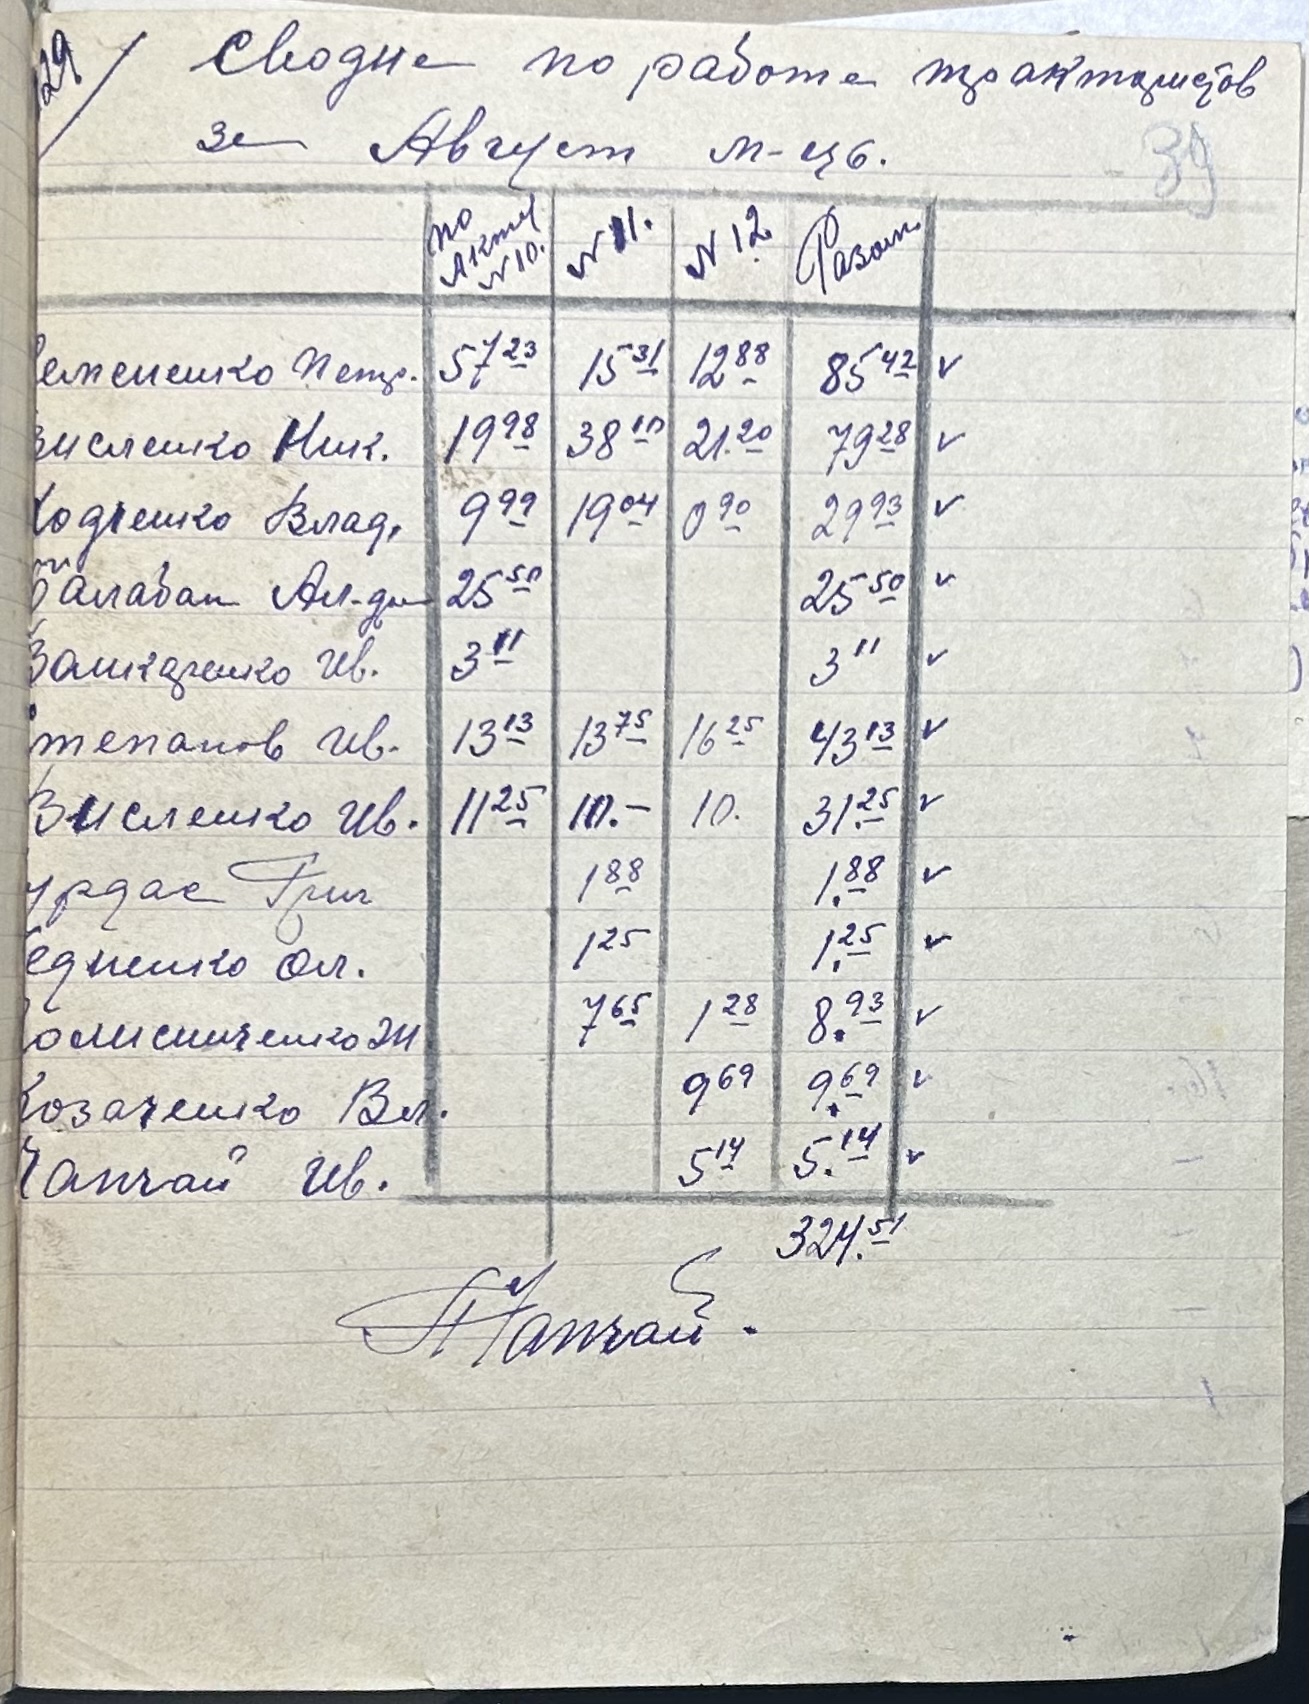 129/ Сводка по работе трактористов
за Август м-ць.
39
по Акту №10. №11. №12. Разом.
еменченко Петр. 57 23 15 31 12 88 85 42 v
висленко Ник. 19 98 38 10 21.20 79 28 v
Ходченко Влад. 9 99 19 04 0 90 29 93 v
Балабан Ал-др 25 50 25 50 v
Ив. 3 11 3 11 v
Степанов Ив. 13 13 13 75 16 25 43 13 v
Висленко Ив. 11 25 10.- 10. 31.25 v
урдас Григ 1 88 1.88 v
едненко Ол. 1 25 1.25 v
7 65 1 28 8.93 v
Козаченко Вл. 9 69 9.69 v
Чапчай Ив. 5 14 5.14 v
324.51
Чапчай.